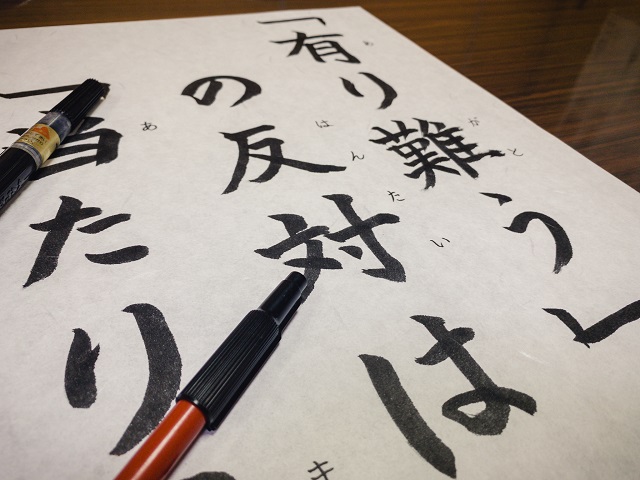 「有り難う」
がと
の反対は
はんたい
「当たり
あ